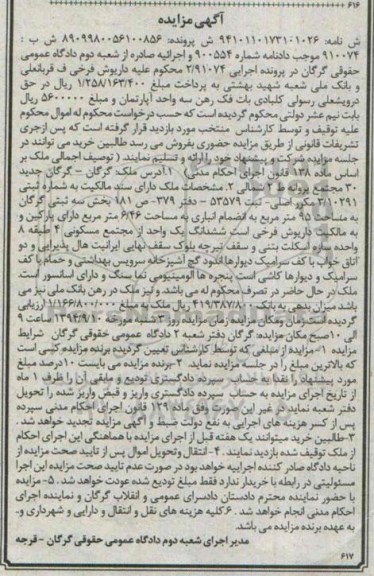 ۶۱۶
آگهی مزایده
ش نامه: ۹۴۱۰۱۱۰۱۷۳۱۰۱۰۲۶ ش پرونده: ۸۹۰۹۹۸۰۰۵۶۱۰۰۸۵۶ ش ب :
۹۱۰۰۷۴ موجب دادنامه شماره ۹۰۰۵۵۴ و اجرائیه صادره از شعبه دوم دادگاه عمومی
حقوقی گرگان در پرونده اجرایی ۲/۹۱۰۷۴ محکوم علیه داریوش فرخی ف قربانعلی
و بانک ملی شعبه شهید بهشتی به پرداخت مبلغ ۱/۲۵۸/۱۶۳/۴۰۰ ریال در حق
درویشعلی رسولی کلبادی بات فک رهن سه واحد آپارتمان و مبلغ ۵۶۰۰۰۰۰ ریال
بابت نیم عشر دولتی محکوم گردیده است که حسب درخواست محکوم له اموال محکوم
علیه توقیف و توسط کارشناس منتخب مورد بازدید قرار گرفته است که پس از جری
تشریفات قانونی از طریق مزایده حضوری بفروش می رسد طالبین خرید می توانند در
جلسه مزایده شرکت و پیشنهاد خود را ارائه و تسلیم نمایند. ( توصیف اجمالی ملک بر
اساس ماده ۱۳۸ قانون اجرای احکام مدنی) ۱.آدرس ملک: گرگان - گرگان جدید
۳۰ مجتمع پروله ط ۴ شمالی ۲. مشخصات ملک دارای سند مالکیت به شماره ثبتی
۳/۱۰۲۹۱ مکرر اصلی- ثبت ۵۳۵۷۹ - دفتر ۳۷۹- ص ۱۸۱ بخش سه ثبتی گرگان
به مساحت ۹۵ متر مربع به انضمام انباری به مساحت ۶/۴۶ متر مربع دارای پارکین و
به مالکیت داریوش فرخی است ششدانگ یک واحد از مجتمع مسکونی ۴ طبقه ۸
واحده سازه اسکلت بتنی و سقف تیرچه بلوک سقف نهایی ایرانیت هال پذیرایی و دو
اتاق خواب با کف سرامیک دیوارها اندود گچ آشپزخانه سرویس بهداشتی و حمام با کف
سرامیک و دیوارها کاشی است پنجره ها آلومینیومی نما سنگ و دارای آسانسور است.
ملک در حال حاضر در تصرف محکوم له می باشد و نیز ملک در رهن بانک ملی نیز می
باشد میزان بدهی به بانک ۴۱۹/۳۸۷/۸۰۰ ریال ملک به مبلغ ۱/۱۶۶/۸۰۰/۰۰۰ ارزیابی
گردیده است زمان ومکان مزایده زمان مزایده روز سه شنبه مورخه ۱۳۹۴/۹/۱۰ ساعت ۹
الی ۱۰ صبح مکان مزایده: گرگان دفتر شعبه ۲ دادگاه عمومی حقوقی گرگان شرایط
مزایده ۱- مزایده از مبلغی که توسط کارشناس تعیین گردیده برنده مزایده کسی است
که بالاترین مبلغ را در جلسه مزایده نماید. ۲- برنده مزایده می بایست ۱۰درصد مبلغ
مورد پیشنهاد را نقدا به حساب سپرده دادگستری تودیع و مابقی آن را ظرف ۱ ماه
از تاریخ اجرای مزایده به حساب سپرده دادگستری واریز و فیش واریز شده را تحویل
دفتر شعبه نماید، در غیر این صورت وفق ماده ۱۲۹ قانون اجرای احکام مدنی سپرده
پس از کسر هزینه های اجرایی به نفع دولت ضبط و آگهی مزایده تجدید خواهد شد.
۳-طالبین خرید میتوانند یک هفته قبل از اجرای مزایده با هماهنگی این اجرای احکام
از ملک توقیف شده بازدید نمایند. ۴-انتقال وتحویل اموال پس از تایید صحت مزایده از
ناحیه دادگاه صادر کننده اجراییه خواهد بود در صورت عدم تایید صحت مزایده این اجرا
مسئولیتی در رابطه با خریدار ندارد فقط مبلغ تودیع شده عودت خواهد شد. ۵-مزایده
با حضور نماینده محترم دادستان دادسرای عمومی و انقلاب گرگان و نماینده اجرای
احکام مدنی انجام خواهد شد. ۶.کلیه هزینه های نقل و انتقال و دارایی و شهرداری و..
به عهده برنده مزایده می باشد.
مدیر اجرای شعبه دوم دادگاه عمومی حقوقی گرگان - قرجه
۶۱۷